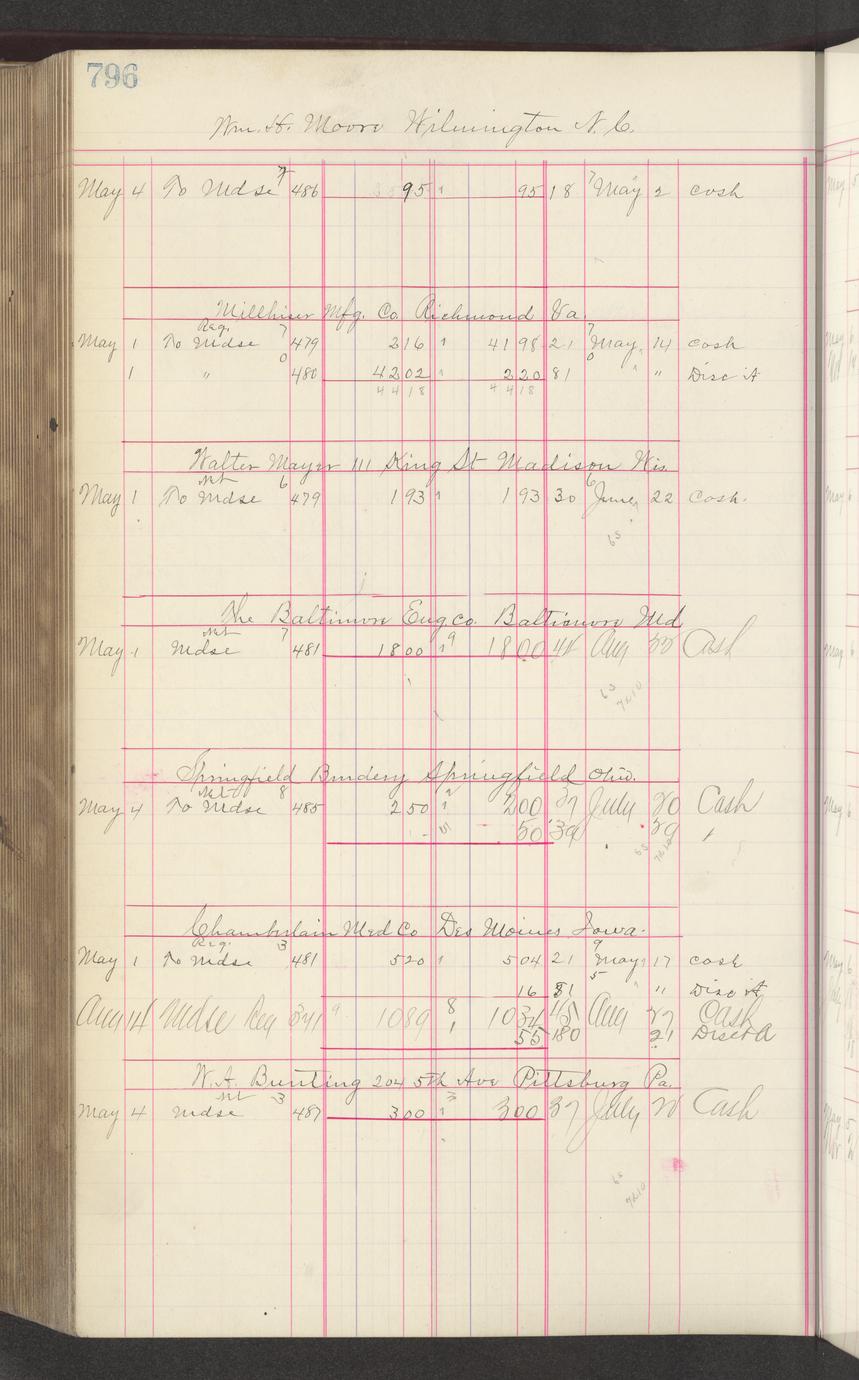 796
Wm. H. Moore Wilmington N. C.
7 7
May 4 To Mdse 486 95 1 95 18 May 2 cash
Millhiser Mfg. Co. Richmond Va.
Reg. 7 7
May 1 To Mdse 479 216 1 4198 21 May 14 cash
0 0
1 " 480 4202 1 220 81 " " Disc A
4418 4418
Walter Mayer 111 King St Madison Wis.
Net 6 6
May 1 To Mdse 479 193 1 193 30 June 22 Cash.
65
The Baltimore Eng. Co. Baltimore Md
Net 7 9
May 1 Mdse 481 1800 1 1800 44 Aug Cash
65
7210
Springfield Bindery Springfield Ohio.
Net 8
May 4 To Mdse 485 250 1 200 37 July 20 Cash
50 39 29
65
7210
Chamberlain Med Co Des Moines Iowa.
Reg. 3 9
May 1 To Mdse 481 520 1 504 21 May 17 cash
5
16 81 " " Disc A
Aug 14 Mdse Reg 341 1089 8 1034 45 Aug 27 Cash
1 55 180 21 Disct A
W. A. Bunting 204 5th Ave Pittsburg Pa.
Net 3 3
May 4 Mdse 487 300 1 300 37 July 20 Cash
65
7210